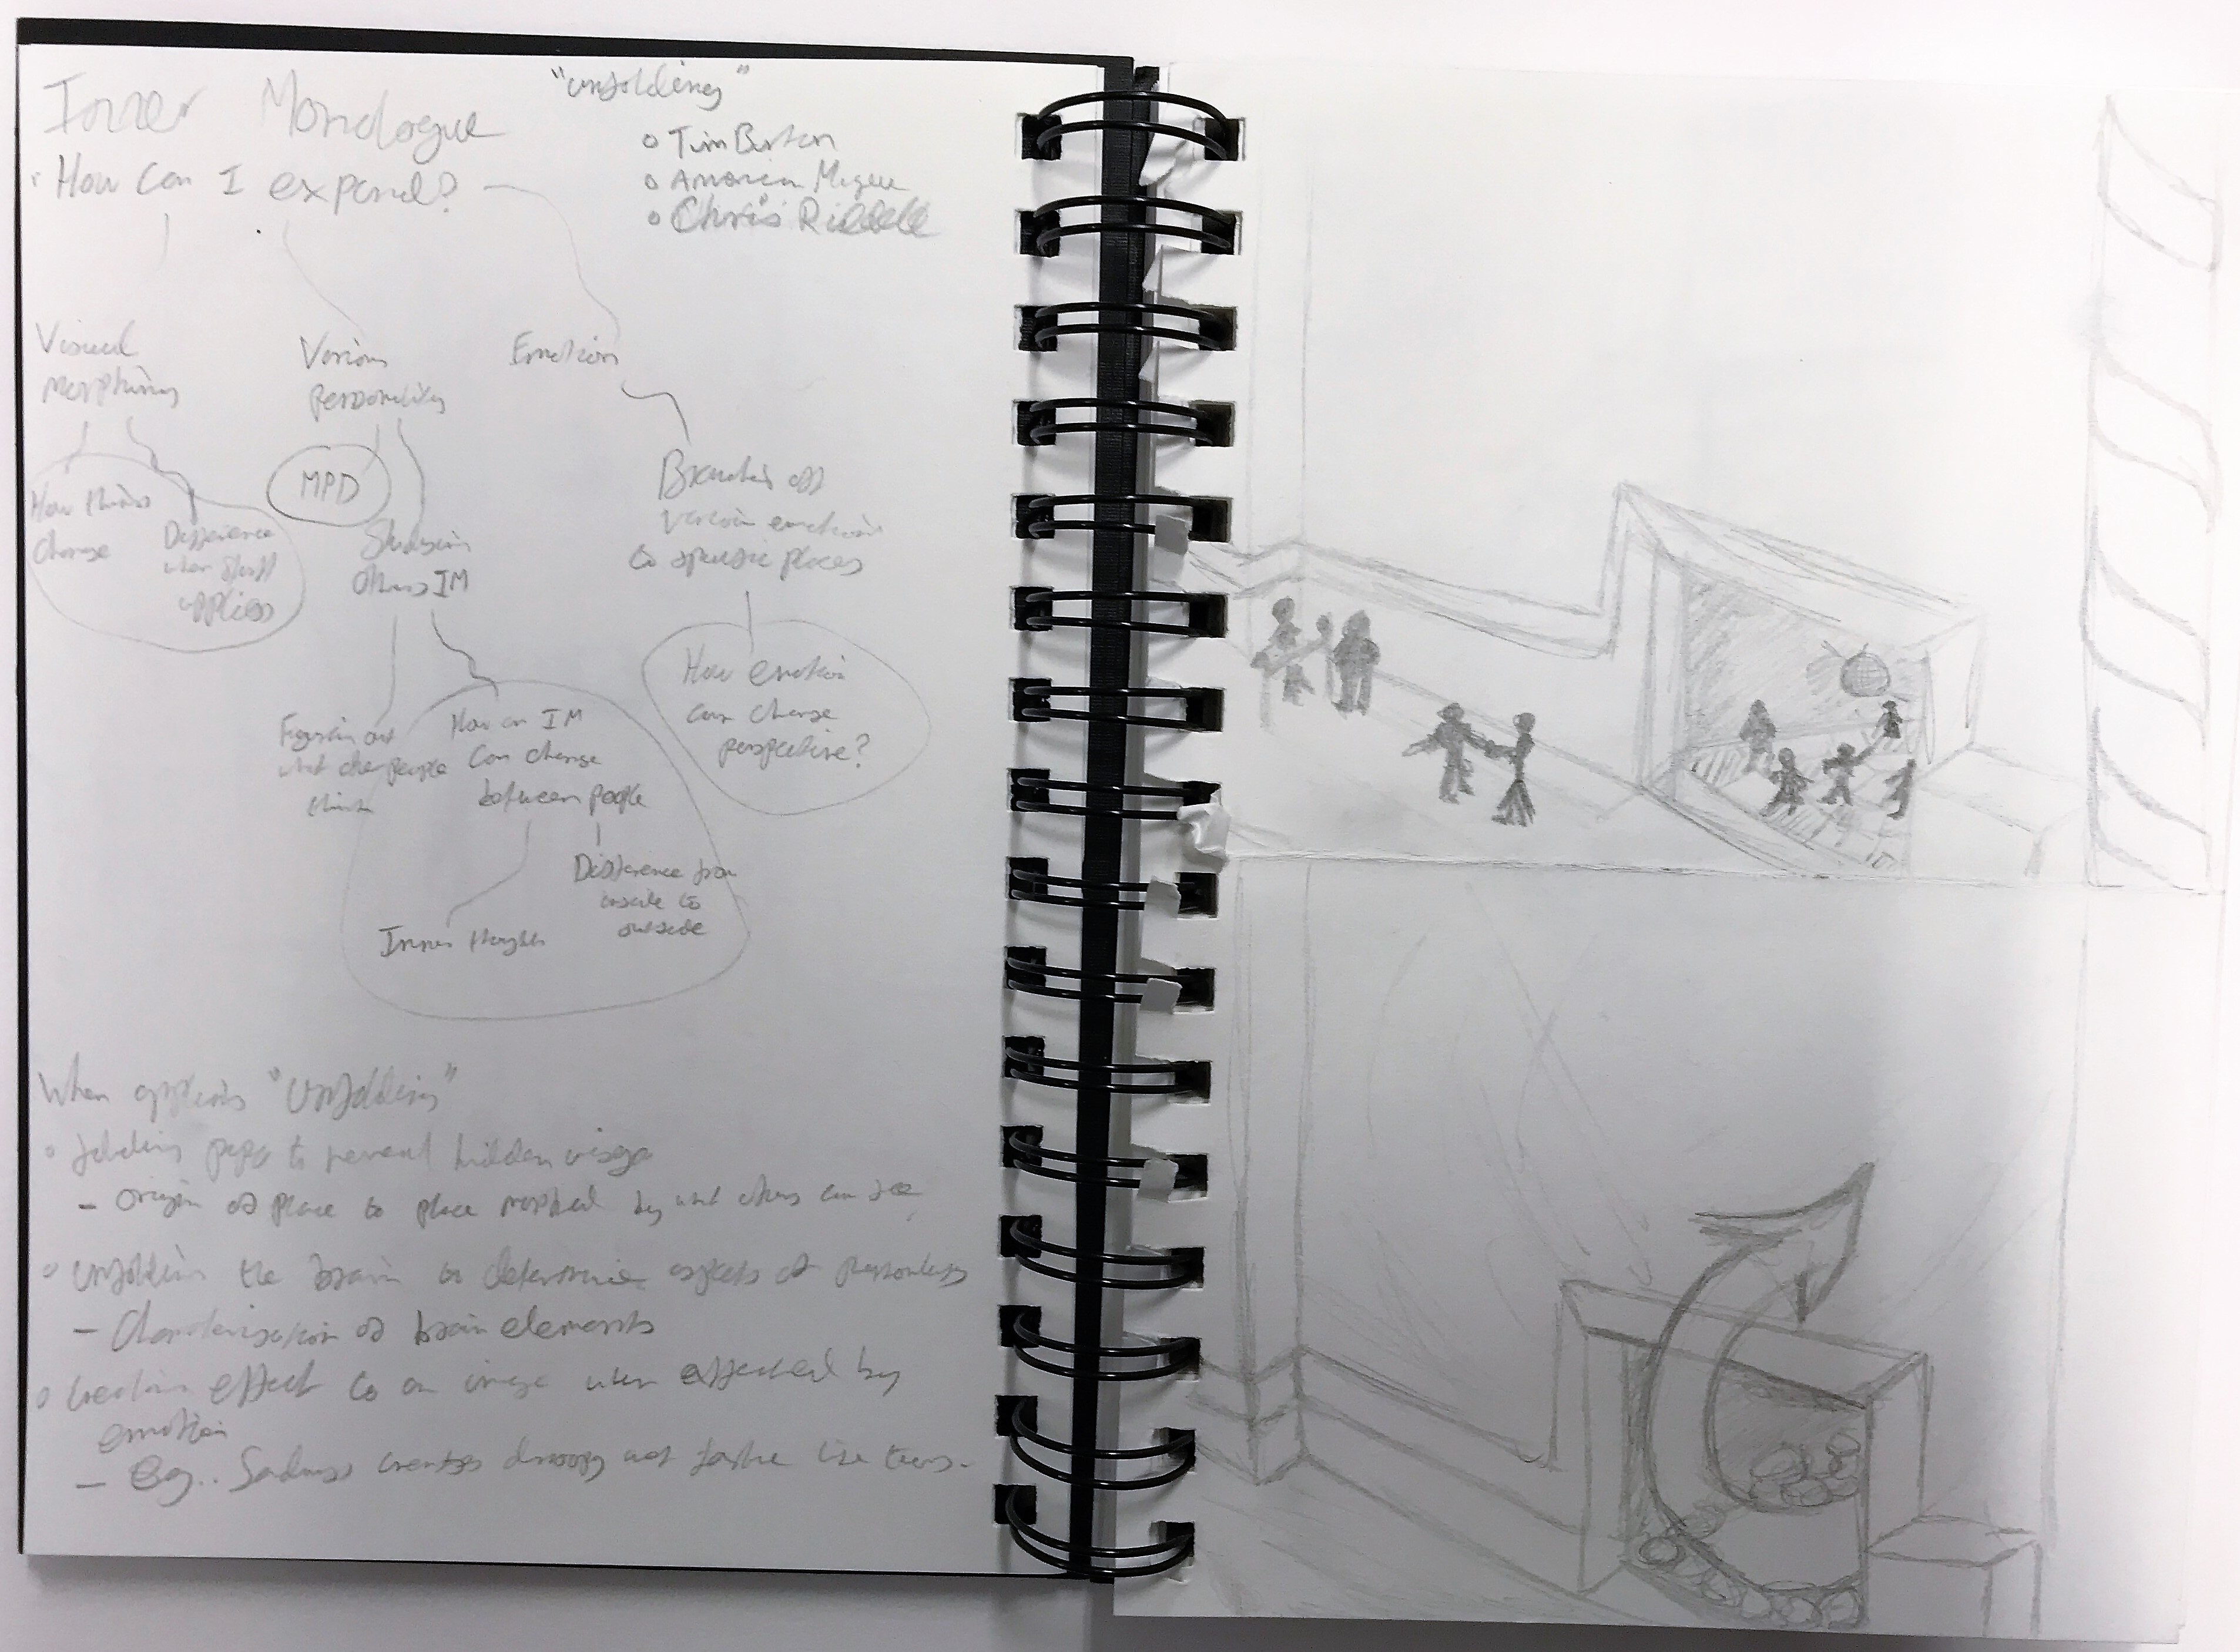 Inner Monologue
"unfolding"
o Tim Burton
o American Mcgee
o Chris Riddell
• How Can I expand?
Visual
Morphing
Various
Personality
Emotion
MPD
How things
change
Difference
when stuff
applies
Studying
Others IM
Branches off
various emotions
to specific places
How emotion
can change
perspective?
Figuring out
what other people
think
How an IM
Can change
between people
Difference from
inside to
outside
Inner thoughts
When applying "Unfolding"
o folding page to reveal hidden
- Origin of place to place morphed by what others can see
o unfolding the brain to determine aspects of
- Characterisation of brain elements
o Creating effect to an image when effected by
emotion
- Eg.. Sadness creates droopy like tears.